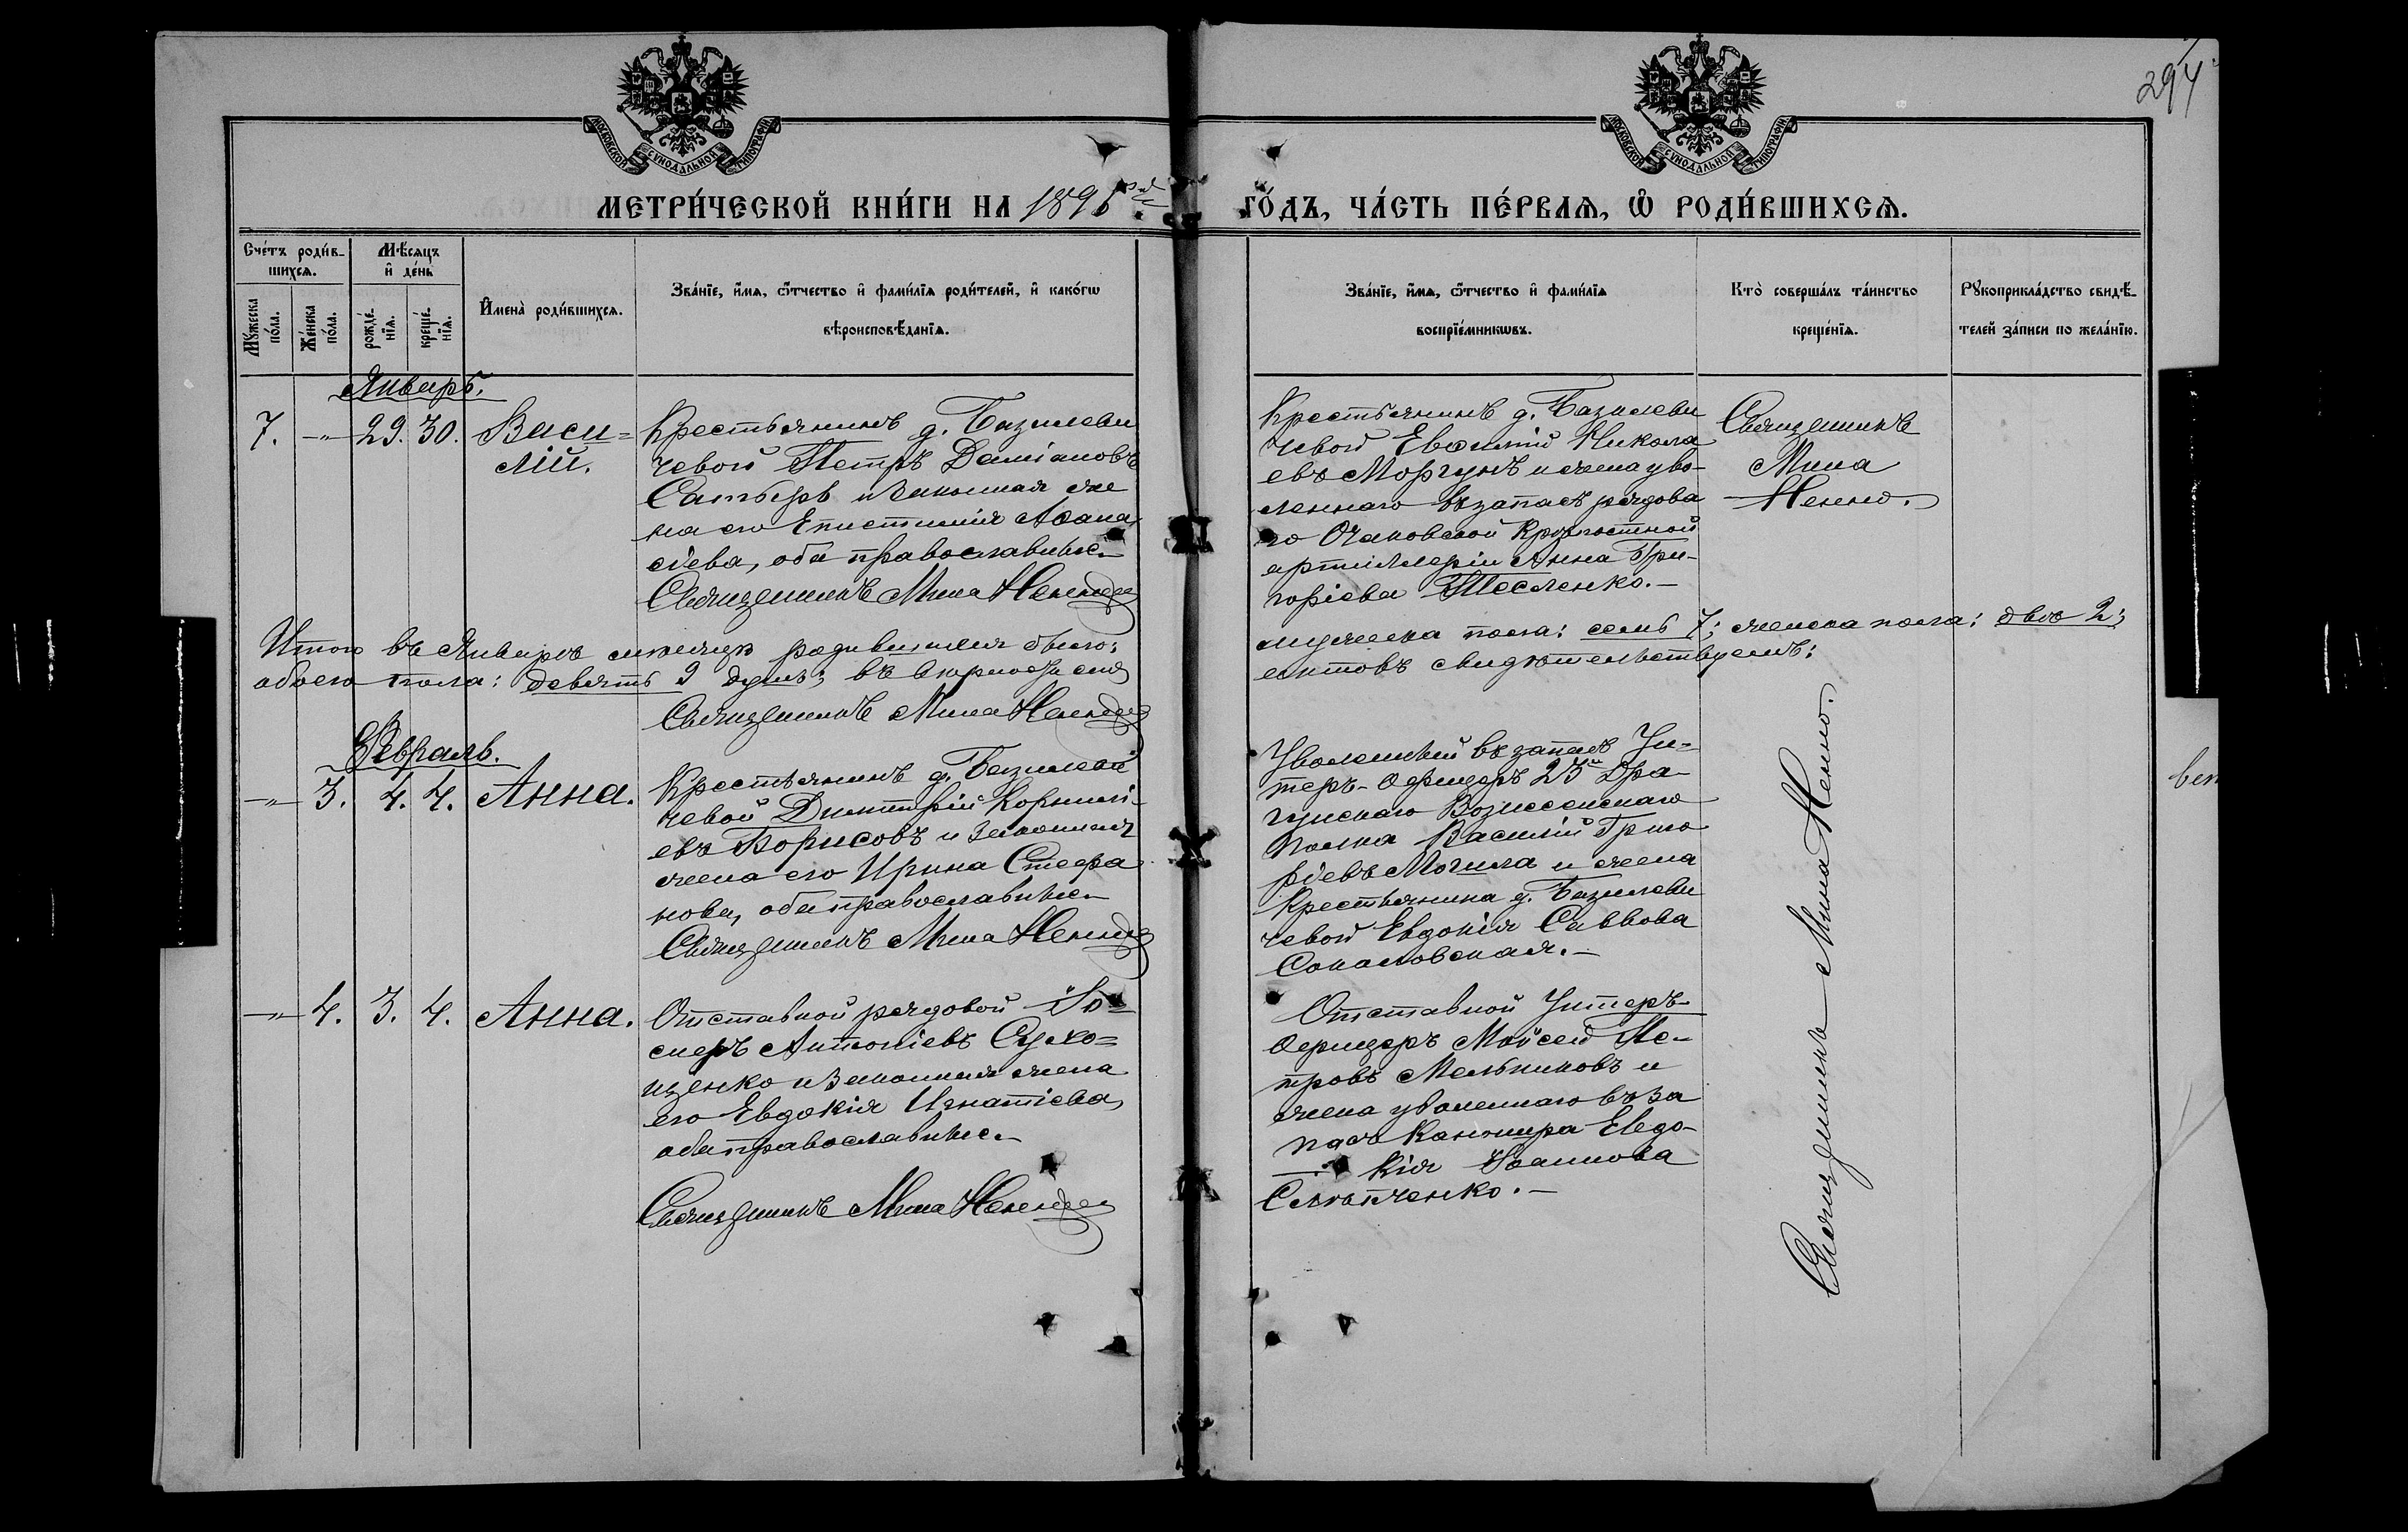 294
МОСКОВСКОЙ СУНОДАЛЬНОЙ ТИПОГРАФІИ
МОСКОВСКОЙ СУНОДАЛЬНОЙ ТИПОГРАФІИ
МЕТРИ́ЧЕСКОЙ КНИ́ГИ НА 1896 ГО́ДЪ, ЧА́СТЬ ПЕ́РВАѦ, Ѽ РОДИ́ВШИХСѦ.
Сче́тъ роди́в-
шихсѧ.
Мꙋжеска по́ла.
Же́нска по́ла.
Мѣ́сѧцъ
и҆ де́нь
рожде́-
нїѧ.
креще́-
нїѧ.
И҆мена̀ роди́вшихсѧ.
Зва́нїе, и҆́мѧ, ѻ҆́тчество и҆ фами́лїѧ роди́телей, и҆ како́гѡ
вѣроисповѣ́данїѧ.
Зва́нїе, и҆́мѧ, ѻ҆́тчество и҆ фами́лїѧ
воспрїе́мникѡвъ.
Кто̀ соверша́лъ та́инство
креще́нїѧ.
Рꙋкоприкла́дство свидѣ́-
телей за́писи по жела́нїю.
Январь.
7. -„- 29. 30. Васи=
лій.
Крестьянинъ д. Базилеви
чевой Петръ Даміановъ
Сатыръ и законная же
на его Епистимія Аѳана
сіева, оба православные.
Священникъ Мина Ненно
Крестьянинъ д. Базилеви
чевой Евѳимій Никола
евъ Моргунъ и жена уво-
леннаго въ запасъ рядова
го Очаковской крѣпостной
артиллеріи Анна Гри-
горіева Тесленко.-
Священникъ
Мина
Ненно.
Итого въ Январѣ мѣсяцѣ родившихся было: мужеска пола: семь 7; женска пола: двѣ 2;
обоего пола: девять 9 душъ; въ вѣрности сихъ актовъ свидѣтельствуемъ:
Священникъ Мина Ненно
Февраль.
-„- 3. 4. 4. Анна.
Крестьянинъ д. Базилеви
чевой Димитрій Корнилі-
евъ Борисовъ и законная
жена его Ирина Стефа
нова, оба православные.
Священникъ Мина Ненно
Уволенный въ запасъ Ун-
теръ-Офицеръ 23й Дра-
гунскаго Вознесенскаго
полка Василій Григо
ріевъ Могила и жена
Крестьянина д. Базилеви
чевой Евдокія Саввова
Соколовская.-
-„- 4. 3. 4. Анна.
Отставной рядовой Іо=
сифъ Антоніевъ Сухо=
щенко и законная жена
его Евдокія Игнатіева,
оба православные.
Священникъ Мина Ненно
Отставной Унтеръ-
Офицеръ Моѵсей Пе-
тровъ Мельниковъ и
жена уволеннаго въ за
пасъ Канонира Евдо-
кія Іоаннова
Слѣпченко.-
Священникъ Мина Ненно.